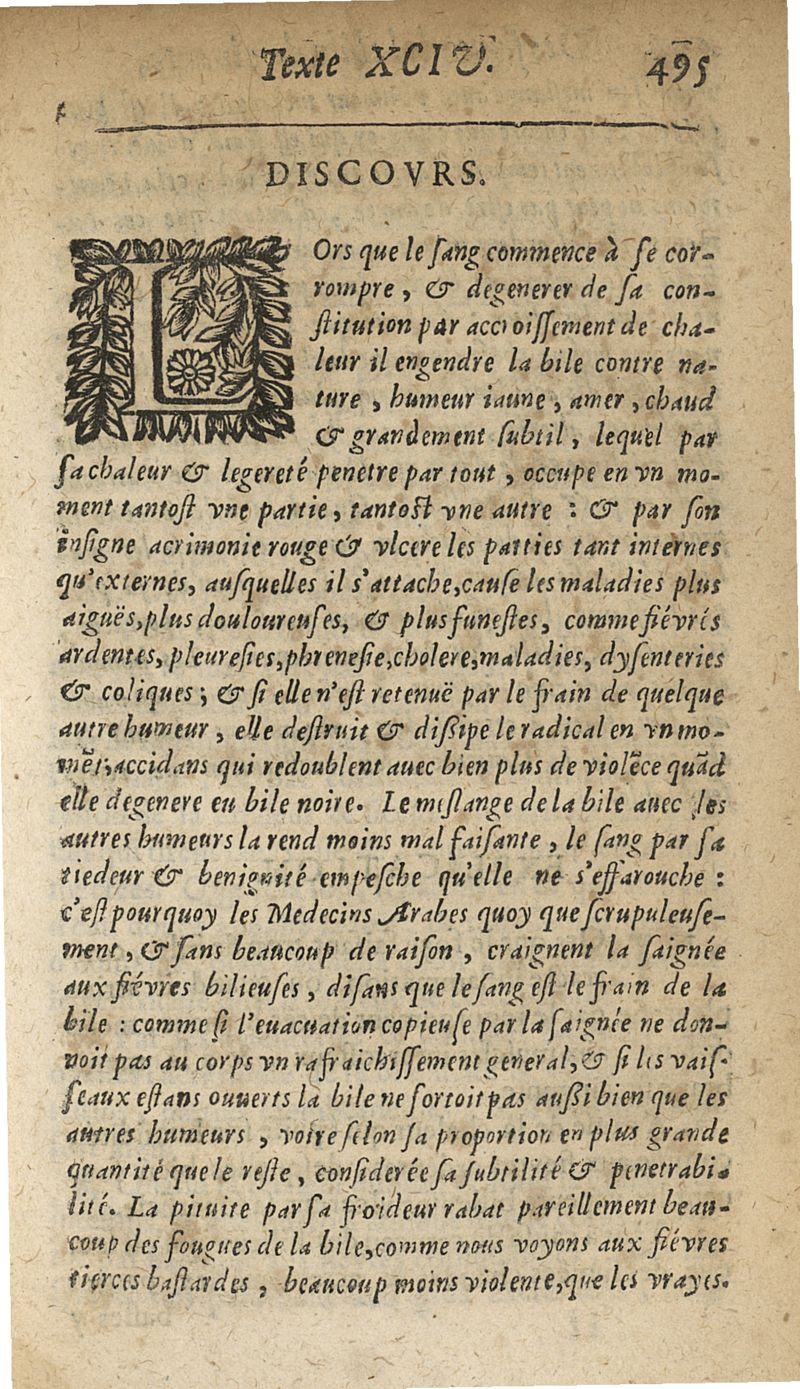 Texte XCIV. 495
DISCOVRS.
LOrs que le sang commence à se cor-
rompre, & degenerer de sa con-
stitution par accroissement de cha-
leur il engendre la bile contre na-
ture, humeur iaune, amer, chaud
& grandement subtil, lequel par
sa chaleur & legereté penetre par tout, occupe en vn mo-
ment tantost vne partie, tantost vne autre : & par son
insigne acrimonie rouge & vlcere les patties tant internes
qu'externes, ausquelles il s'attache, cause les maladies plus
aiguës, plus douloureuses, & plus funestes, comme fiévres
ardentes, pleuresies, phrenesie, cholere, maladies, dysenteries
& coliques ; & si elle n'est retenuë par le frain de quelque
autre humeur, elle destruit & dissipe le radical en vn mo-
mēt, accidans qui redoublent auec bien plus de violēce quād
elle degenere eu bile noire. Le meslange de la bile auec les
autres humeurs la rend moins mal faisante, le sang par sa
tiedeur & benignité empesche qu'elle ne s'effarouche :
c'est pourquoy les Medecins Arabes quoy que scrupuleuse-
ment, & sans beaucoup de raison, craignent la saignée
aux fiévres bilieuses, disans que le sang est le frain de la
bile : comme si l'euacuation copieuse par la saignée ne don-
noit pas au corps vn rafraichissement general, & si les vais-
seaux estans ouuerts la bile ne sortoit pas aussi bien que les
autres humeurs, voire selon sa proportion en plus grande
quantité que le reste, considerée sa subtilité & penetrabi-
lité. La pituite par sa froideur rabat pareillement beau-
coup des fougues de la bile, comme nous voyons aux fiévres
tierces bastardes, beaucoup moins violente, que les vrayes.